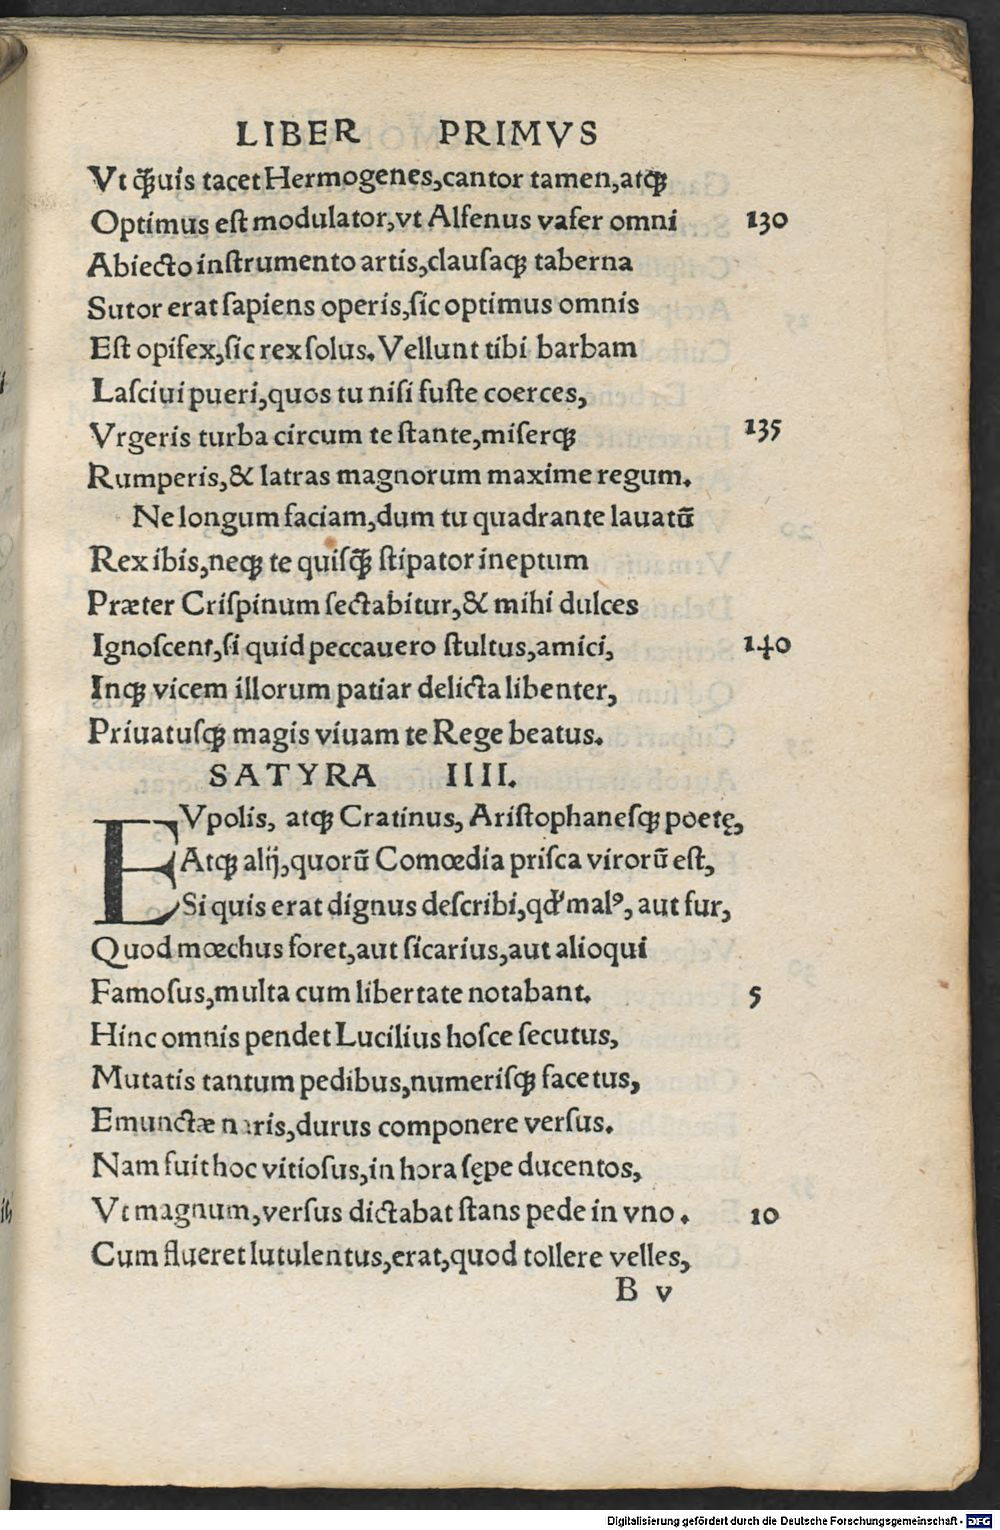 LIBER PRIMVS
Vt q̃uis tacet Hermogenes, cantor tamen, atq;
Optimus eſt modulator, vt Alfenus vafer omni 130
Abiecto inſtrumento artis, clauſaq; taberna
Sutor erat ſapiens operis, ſic optimus omnis
Eſt opifex, ſic rex ſolus. Vellunt tibi barbam
Laſciui pueri, quos tu niſi fuſte coerces,
Vrgeris turba circum te ſtante, miſerq; 135
Rumperis, & latras magnorum maxime regum.
Ne longum faciam, dum tu quadrante lauatũ
Rex ibis, neq; te quiſq̃ ſtipator ineptum
Præter Criſpinum ſectabitur, & mihi dulces
Ignoſcent, ſi quid peccauero ſtultus, amici, 140
Inq; vicem illorum patiar delicta libenter,
Priuatuſq; magis viuam te Rege beatus.
SATYRA IIII.
EVpolis, atq; Cratinus, Ariſtophaneſq; poetę,
Atq; alij, quorũ Comœdia priſca virorũ eſt,
Si quis erat dignus deſcribi, qđ malꝰ, aut fur,
Quod mœchus foret, aut ſicarius, aut alioqui
Famoſus, multa cum libertate notabant. 5
Hinc omnis pendet Lucilius hoſce ſecutus,
Mutatis tantum pedibus, numeriſq; facetus,
Emunctæ naris, durus componere verſus.
Nam fuit hoc vitioſus, in hora ſępe ducentos,
Vt magnum, verſus dictabat ſtans pede in vno. 10
Cum flueret lutulentus, erat, quod tollere velles,
B v
Digitalisierung gefördert durch die Deutsche Forschungsgemeinschaft - DFG